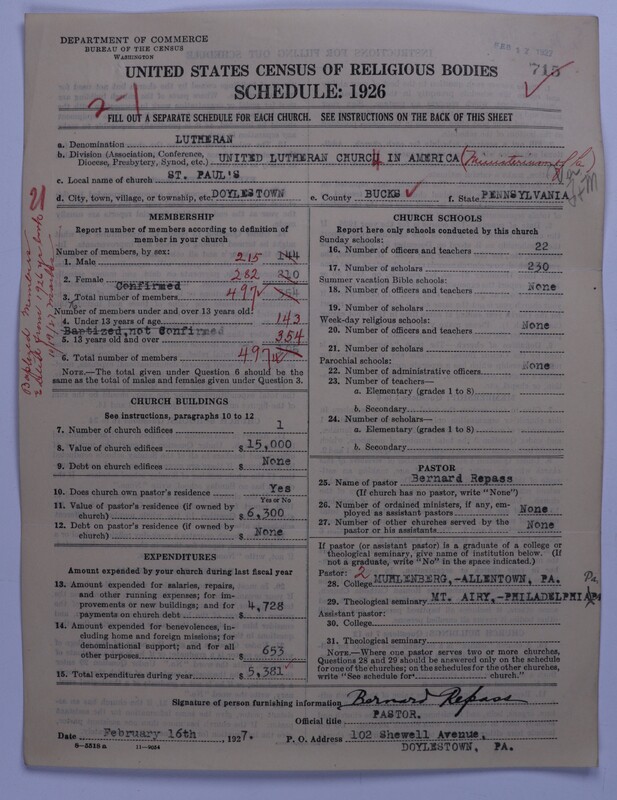 DEPARTMENT OF COMMERCE
BUREAU OF THE CENSUS
WASHINGTON
715
UNITED STATES CENSUS OF RELIGIOUS BODIES
SCHEDULE: 1926
2-1
FILL OUT A SEPARATE SCHEDULE FOR EACH CHURCH. SEE INSTRUCTIONS ON THE BACK OF THIS SHEET
a. Denomination LUTHERAN
b. Division (Association, Conference, Diocese, Presbytery, Synod, etc.) UNITED LUTHERAN CHURCH IN AMERICA (Ministerium of Pa.
c. Local name of church ST. PAUL'S
d. City, town, village, or township, etc. DOYLESTOWN e. County BUCKS f. State PENNSYLVANIA
MEMBERSHIP
Report number of members according to definition of
member in your church
Number of members, by sex:
1. Male 215 144
2. Female 282 210
Confirmed
3. Total number of members 497
Number of members under and over 13 years old:
4. Under 13 years of age 143
Baptized, not Confirmed
5. 13 years old and over 354
6. Total number of members 497
NOTE.—The total given under Question 6 should be
same as the total of males and females given under Question 3.
CHURCH BUILDINGS
See instructions, paragraphs 10 to 12
7. Number of church edifices 1
8. Value of church edifices $ 15,000
9. Debt on church edifices $ None
10. Does church own pastor's residence Yes
Yes or No
11. Value of pastor's residence (if owned by
church) $ 6,300
12. Debt on pastor's residence (if owned by
church) $ None
EXPENDITURES
Amount expended by your church during last fiscal year
13. Amount expended for salaries, repairs,
and other running expenses; for im-
provements or new buildings; and for
payments on church debt $ 4,728
14. Amount expended for benevolences, in-
cluding home and foreign missions; for
denominational support; and for all
other purposes $ 653
15. Total expenditures during year $ 5,381
CHURCH SCHOOLS
Report here only schools conducted by this church
Sunday schools:
16. Number of officers and teachers 22
17. Number of scholars 230
Summer vacation Bible schools:
18. Number of officers and teachers None
19. Number of scholars
Week-day religious schools:
20. Number of officers and teachers None
21. Number of scholars
Parochial schools:
22. Number of administrative officers None
23. Number of teachers—
a. Elementary (grades 1 to 8)
b. Secondary
24. Number of scholars—
a. Elementary (grades 1 to 8)
b. Secondary
PASTOR
25. Name of pastor Bernard Repass
(If church has no pastor, write "None")
26. Number of ordained ministers, if any, em-
ployed as assistant pastors None
27. Number of other churches served by the
pastor or his assistants None
If pastor (or assistant pastor) is a graduate of a college or
theological seminary, give name of institution below. (If
not a graduate, write "No" in the space indicated.)
Pastor: 2
28. College MUHLENBERG,-ALLENTOWN, PA.
29. Theological seminary MT. AIRY,-PHILADELPHIA Pa.
Assistant pastor:
30. College
31. Theological seminary
NOTE.—Where one pastor serves two or more churches,
Questions 28 and 29 should be answered only on the schedule
for one of the churches; on the schedules for the other churches,
write "See schedule for church."
Signature of person furnishing information Bernard Repass
Official title PASTOR.
Date February 16th, 1927. P. O. Address 102 Shewell Avenue,
8-5518 a 11-9024 DOYLESTOWN, PA.